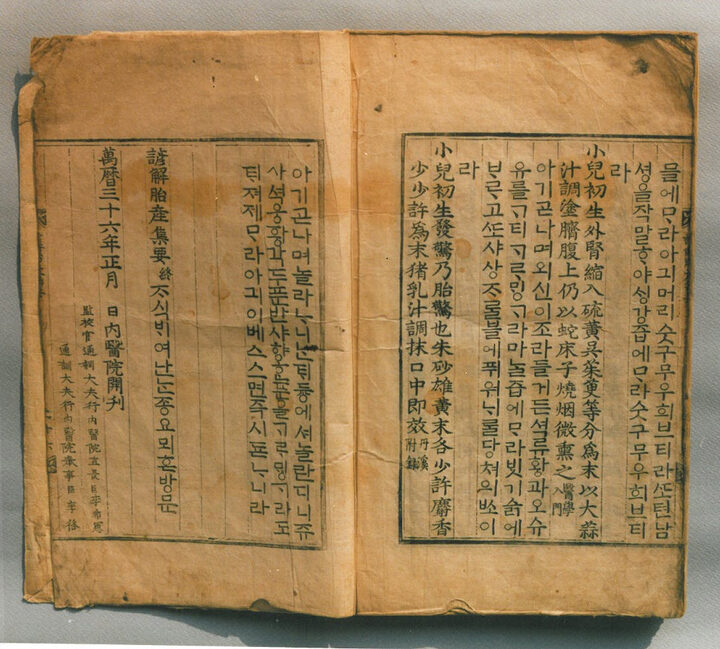 믈에ᄆᆞ라아긔머리숫구무우희브티라ᄯᅩ텬남
셩을작말ᄒᆞ야ᄉᆡᆼ강즙에ᄆᆞ라숫구무우희브티
라
小兒初生外腎縮入硫黃吳茱萸等分爲末以大蒜
汁調塗臍腹上仍以蛇床子燒烟微熏之醫學入門
아기ᄀᆞᆺ나며외신이조라들거든셕류황과오슈
유를ᄀᆞ티ᄀᆞᄅᆞᄆᆡᆼᄀᆞ라마ᄂᆞᆯ즙에ᄆᆞ라ᄇᆡᆺ기슭에
ᄇᆞᄅᆞ고ᄯᅩ샤상ᄌᆞᄅᆞᆯ블에퓌워ᄂᆡᄅᆞᆯ당쳐의ᄡᅬ이
라
小兒初生發驚乃胎驚也朱砂雄黃末各少許麝香
少少許爲末猪乳汁調抹口中即效丹溪附錄
아기ᄀᆞᆺ나며놀라ᄂᆞ니ᄂᆞᆫᄐᆡ듕에셔놀란디니쥬
사셕웅황각두푼반샤향ᄒᆞᆫ푼을ᄀᆞᄅᆞᄆᆡᆼᄀᆞ라도
ᄐᆡ져제ᄆᆞ라아긔이베스스면즉시됸ᄂᆞ니라
諺解胎産集要終 ᄌᆞ식ᄇᆡ여난ᄂᆞᆫ죵요뫼혼방문
萬曆三十六年正月 日內醫院開刊
監校官通訓大夫行內醫院直長臣李希憲
通訓大夫行內醫院奉事臣李